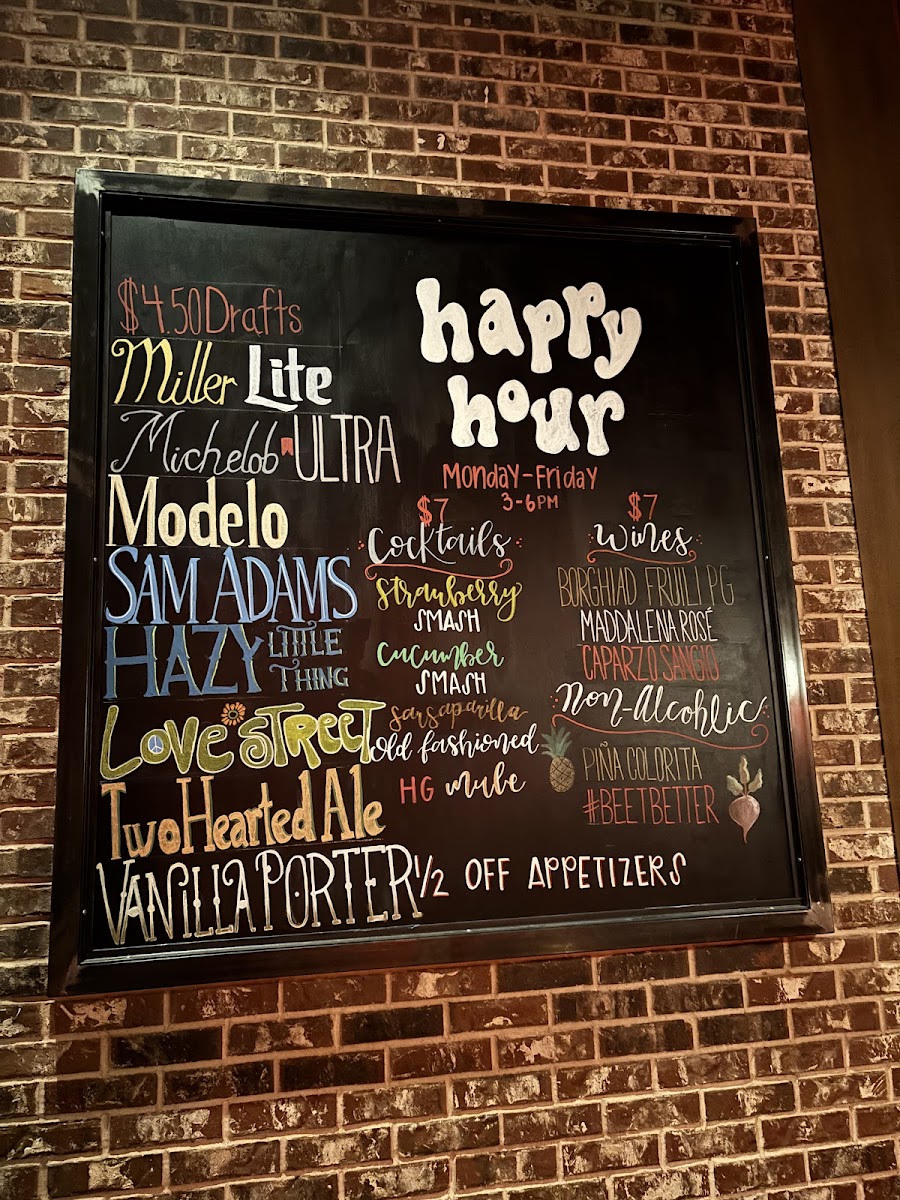 $4.50 Drafts
Miller Lite
Michelob ULTRA
Modelo
SAM ADAMS
HAZY LITTLE
THING
LOVE STREET
Two Hearted Ale
VANILLA PORTER
happy
hour
Monday-Friday
3-6PM
$7
Cocktails
Strawberry
SMASH
Cucumber
SMASH
Sarsaparilla
Old fashioned
HG mule
$7
Wines
BORGHIAD FRUILI PG
MADDALENA ROSÉ
CAPARZO SANGIO
Non-Alcohlic
PIÑA COLORITA
#BEETBETTER
1/2 OFF APPETIZERS